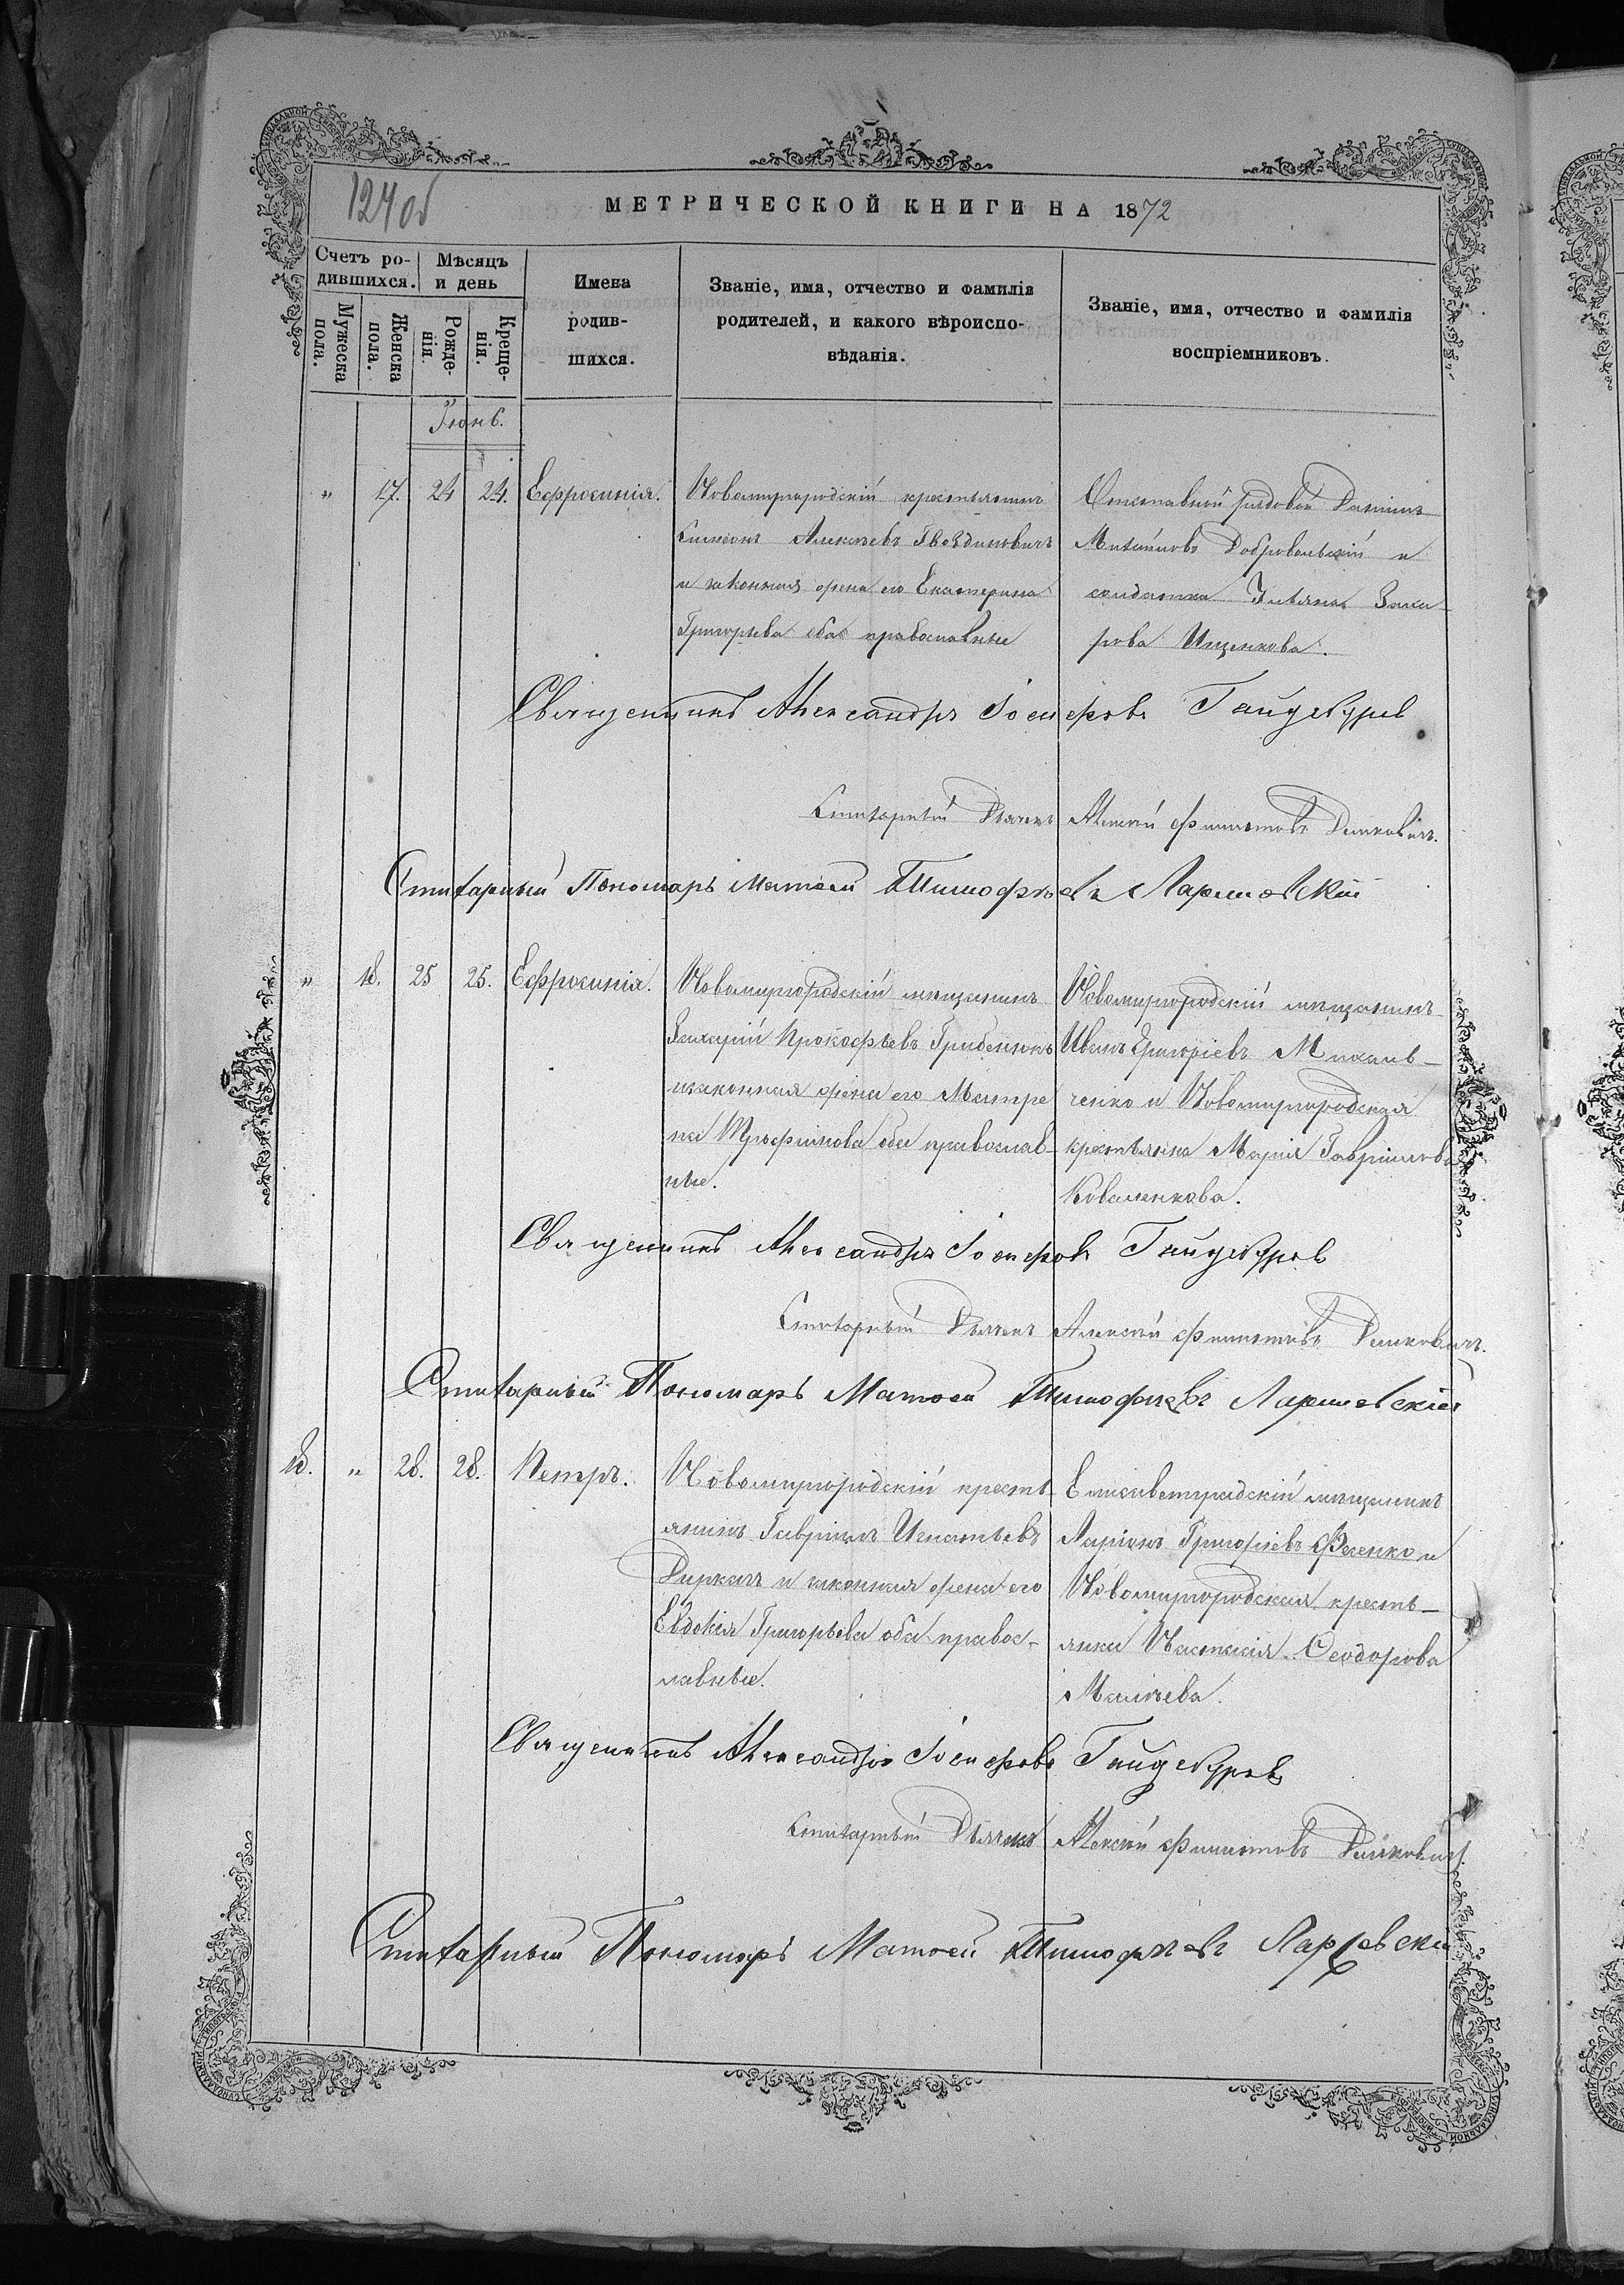 124 об
МЕТРИЧЕСКОЙ КНИГИ НА 1872
Счетъ родившихся.
Мѣсяцъ и день
Имена родившихся.
Званіе, имя, отчество и фамилія родителей, и какого вѣроисповѣданія.
Званіе, имя, отчество и фамилія воспріемниковъ.
Мужеска пола.
Женска пола.
Рожденія.
Крещенія.
Іюнь.
" 17. 24 24. Ефросинія.
Новомиргородскій крестьянинъ
Симеонъ Алексѣевъ Гвоздиковичъ
и законная жена его Екатерина
Григорьева оба православные
Отставной рядовой Даніилъ
Добровольскій и
солдатка Ульяна Заха-
рова Ищенкова.
Священникъ Александръ Іосифовъ Гайдебуров
Сштатный Дьячекъ Алексѣй Филиповъ Димковичъ.
Сштатный Пономарь Матѳей Тимофѣевъ Ларшевскій
" 18. 25 25. Ефросинія.
Новомиргородскій мѣщанинъ
Захарій Прокофьевъ Грибенюкъ
и законная жена его Матре
на Трофимова оба православ-
ные.
Новомиргородскій мѣщанинъ
Иванъ Григоріевъ Михаль-
ченко и Новомиргородская
крестьянка Марія Гавріилова
Коваленкова.
Священникъ Александръ Іосифовъ Гайдебуров
Сштатный Дьячекъ Алексѣй Филиповъ Димковичъ.
Сштатный Пономарь Матѳей Тимофѣевъ Ларшевскій
18. " 28. 28. Петръ.
Новомиргородскій кресть-
янинъ Гавріилъ Игнатьевъ
Диркачъ и законная жена его
Евдокія Григорьева оба правос-
лавные.
Елисаветградскій мѣщанинъ
Ларіонъ Григоріевъ Фесенко и
Новомиргородская кресть-
янка Настасія Ѳеодорова
Малѣева.
Священникъ Александръ Іосифовъ Гайдебуровъ
Сштатный Дьячекъ Алексѣй Филиповъ Димковичъ.
Сштатный Пономарь Матѳей Тимофѣевъ Ларшевскій